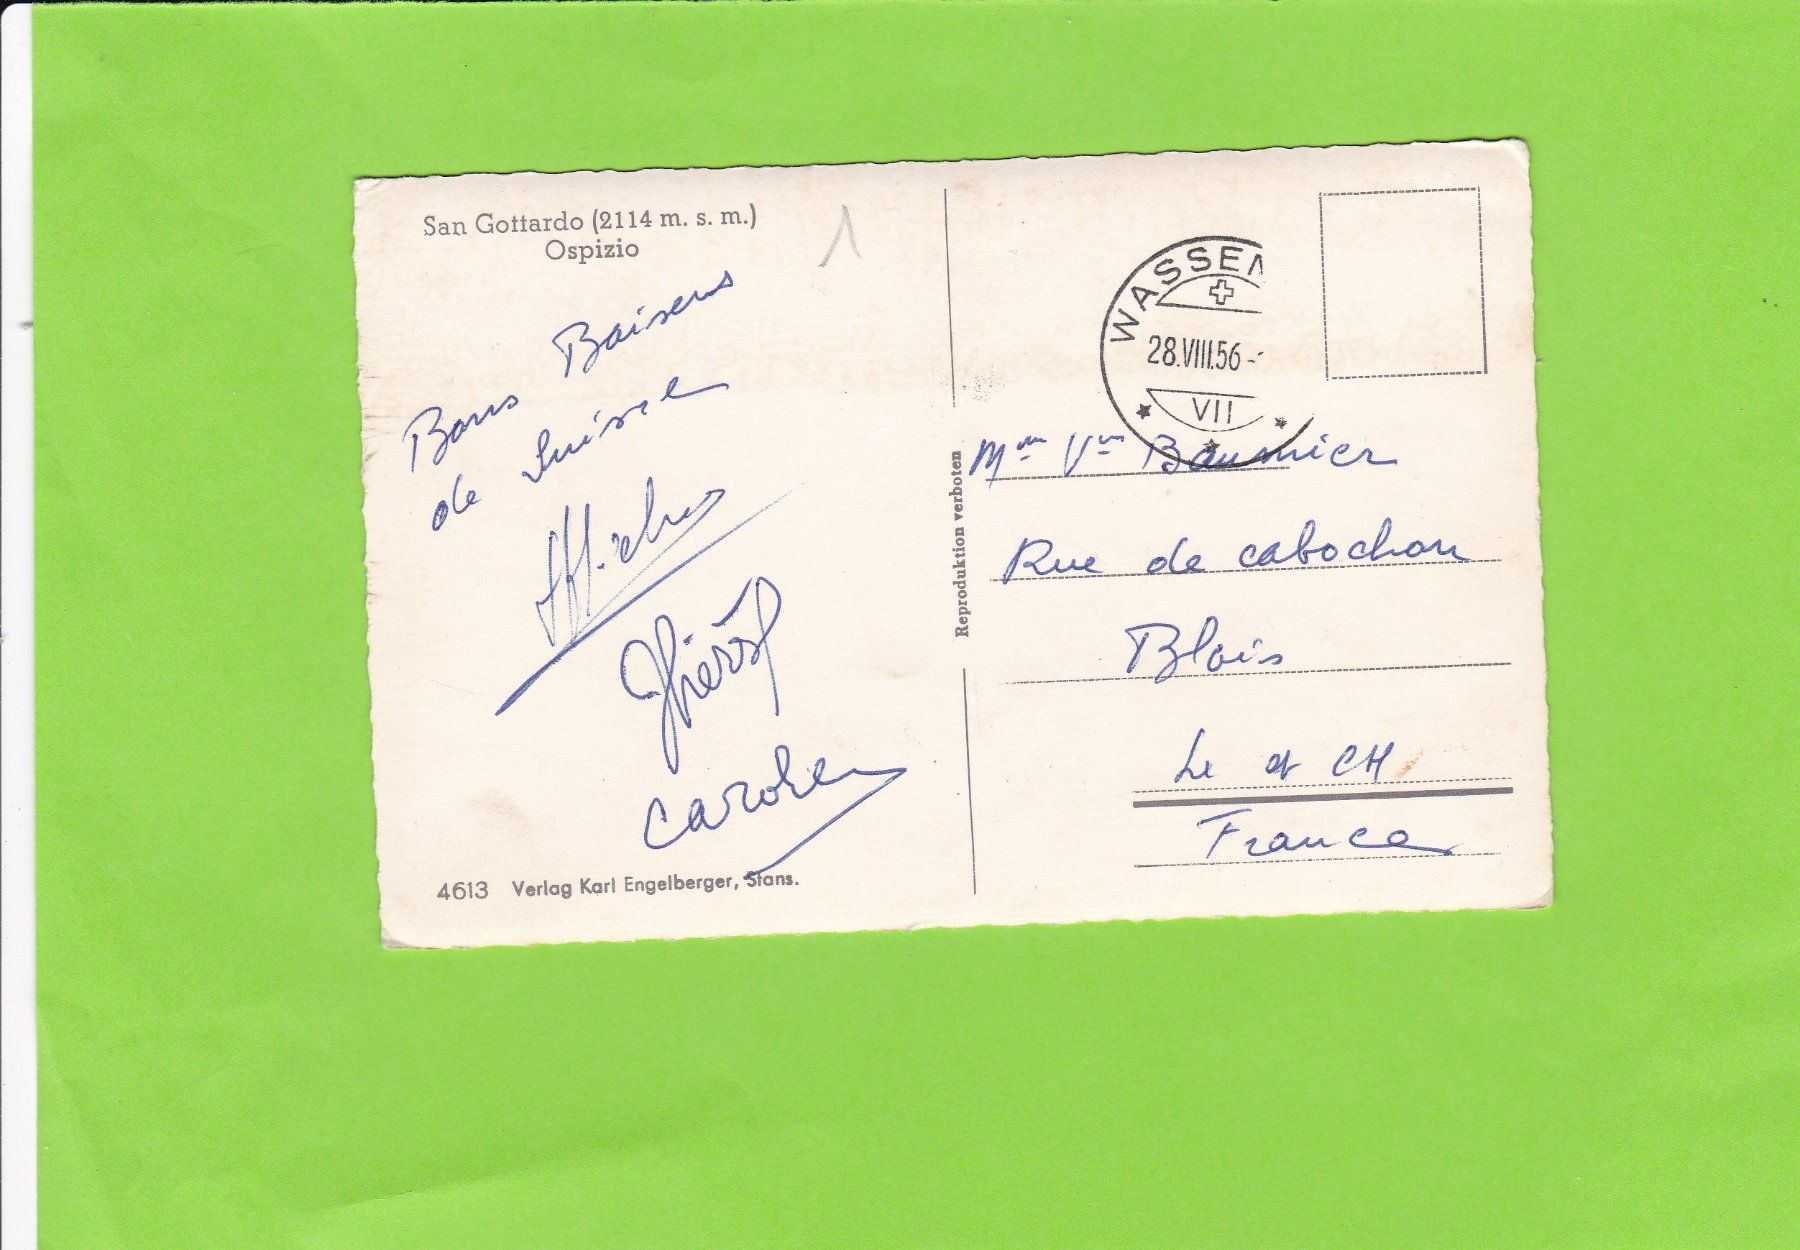 San Gottardo (2114 m. s. m.)
Ospizio
1
Bons Baisers
de Suisse
Carole
4613 Verlag Karl Engelberger, Stans.
Reproduktion verboten
WASSEN
28.VIII.56
VII
Mme Vve Baumier
Rue de cabochon
Blois
L et CH
France